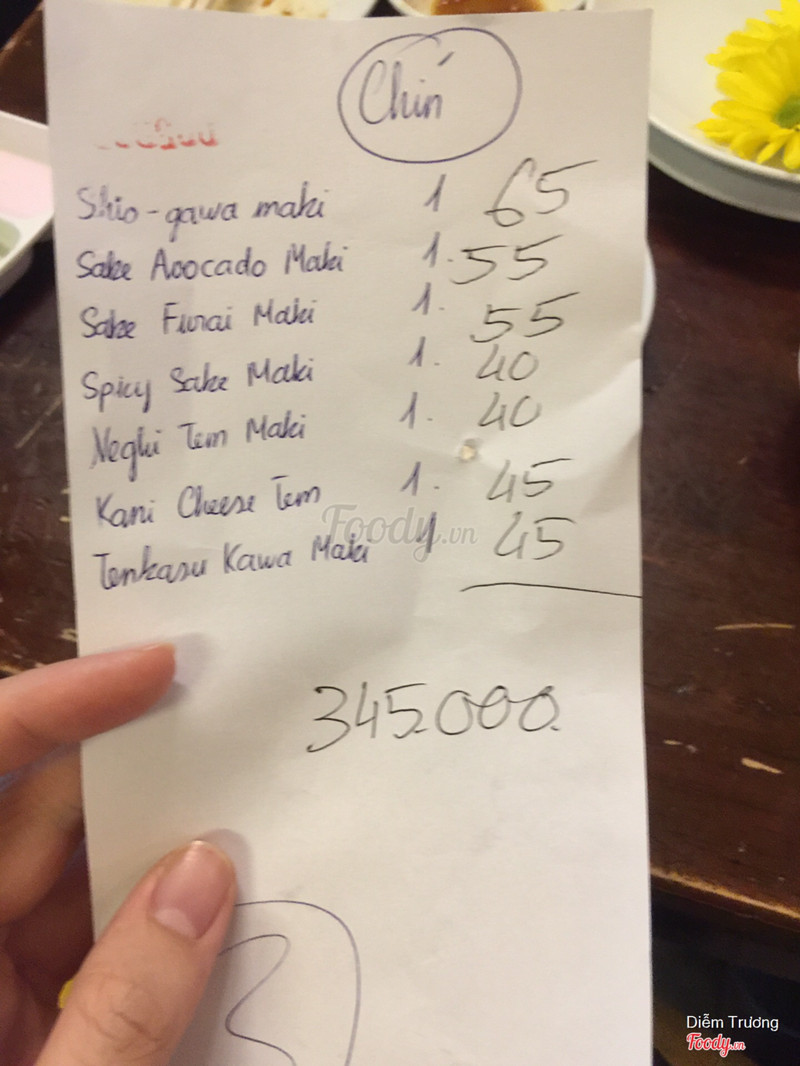 Chín
Shio-gawa maki 1 65
Sake Aoocado Maki 1. 55
Sake Furai Maki 1. 55
Spicy Sake Maki 1. 40
Neghi Tem Maki 1. 40
Kani Cheese Tem 1. 45
Tenkasu Kawa Maki 1 45
Foody.vn
345.000.
2
Diễm Trương
Foody.vn